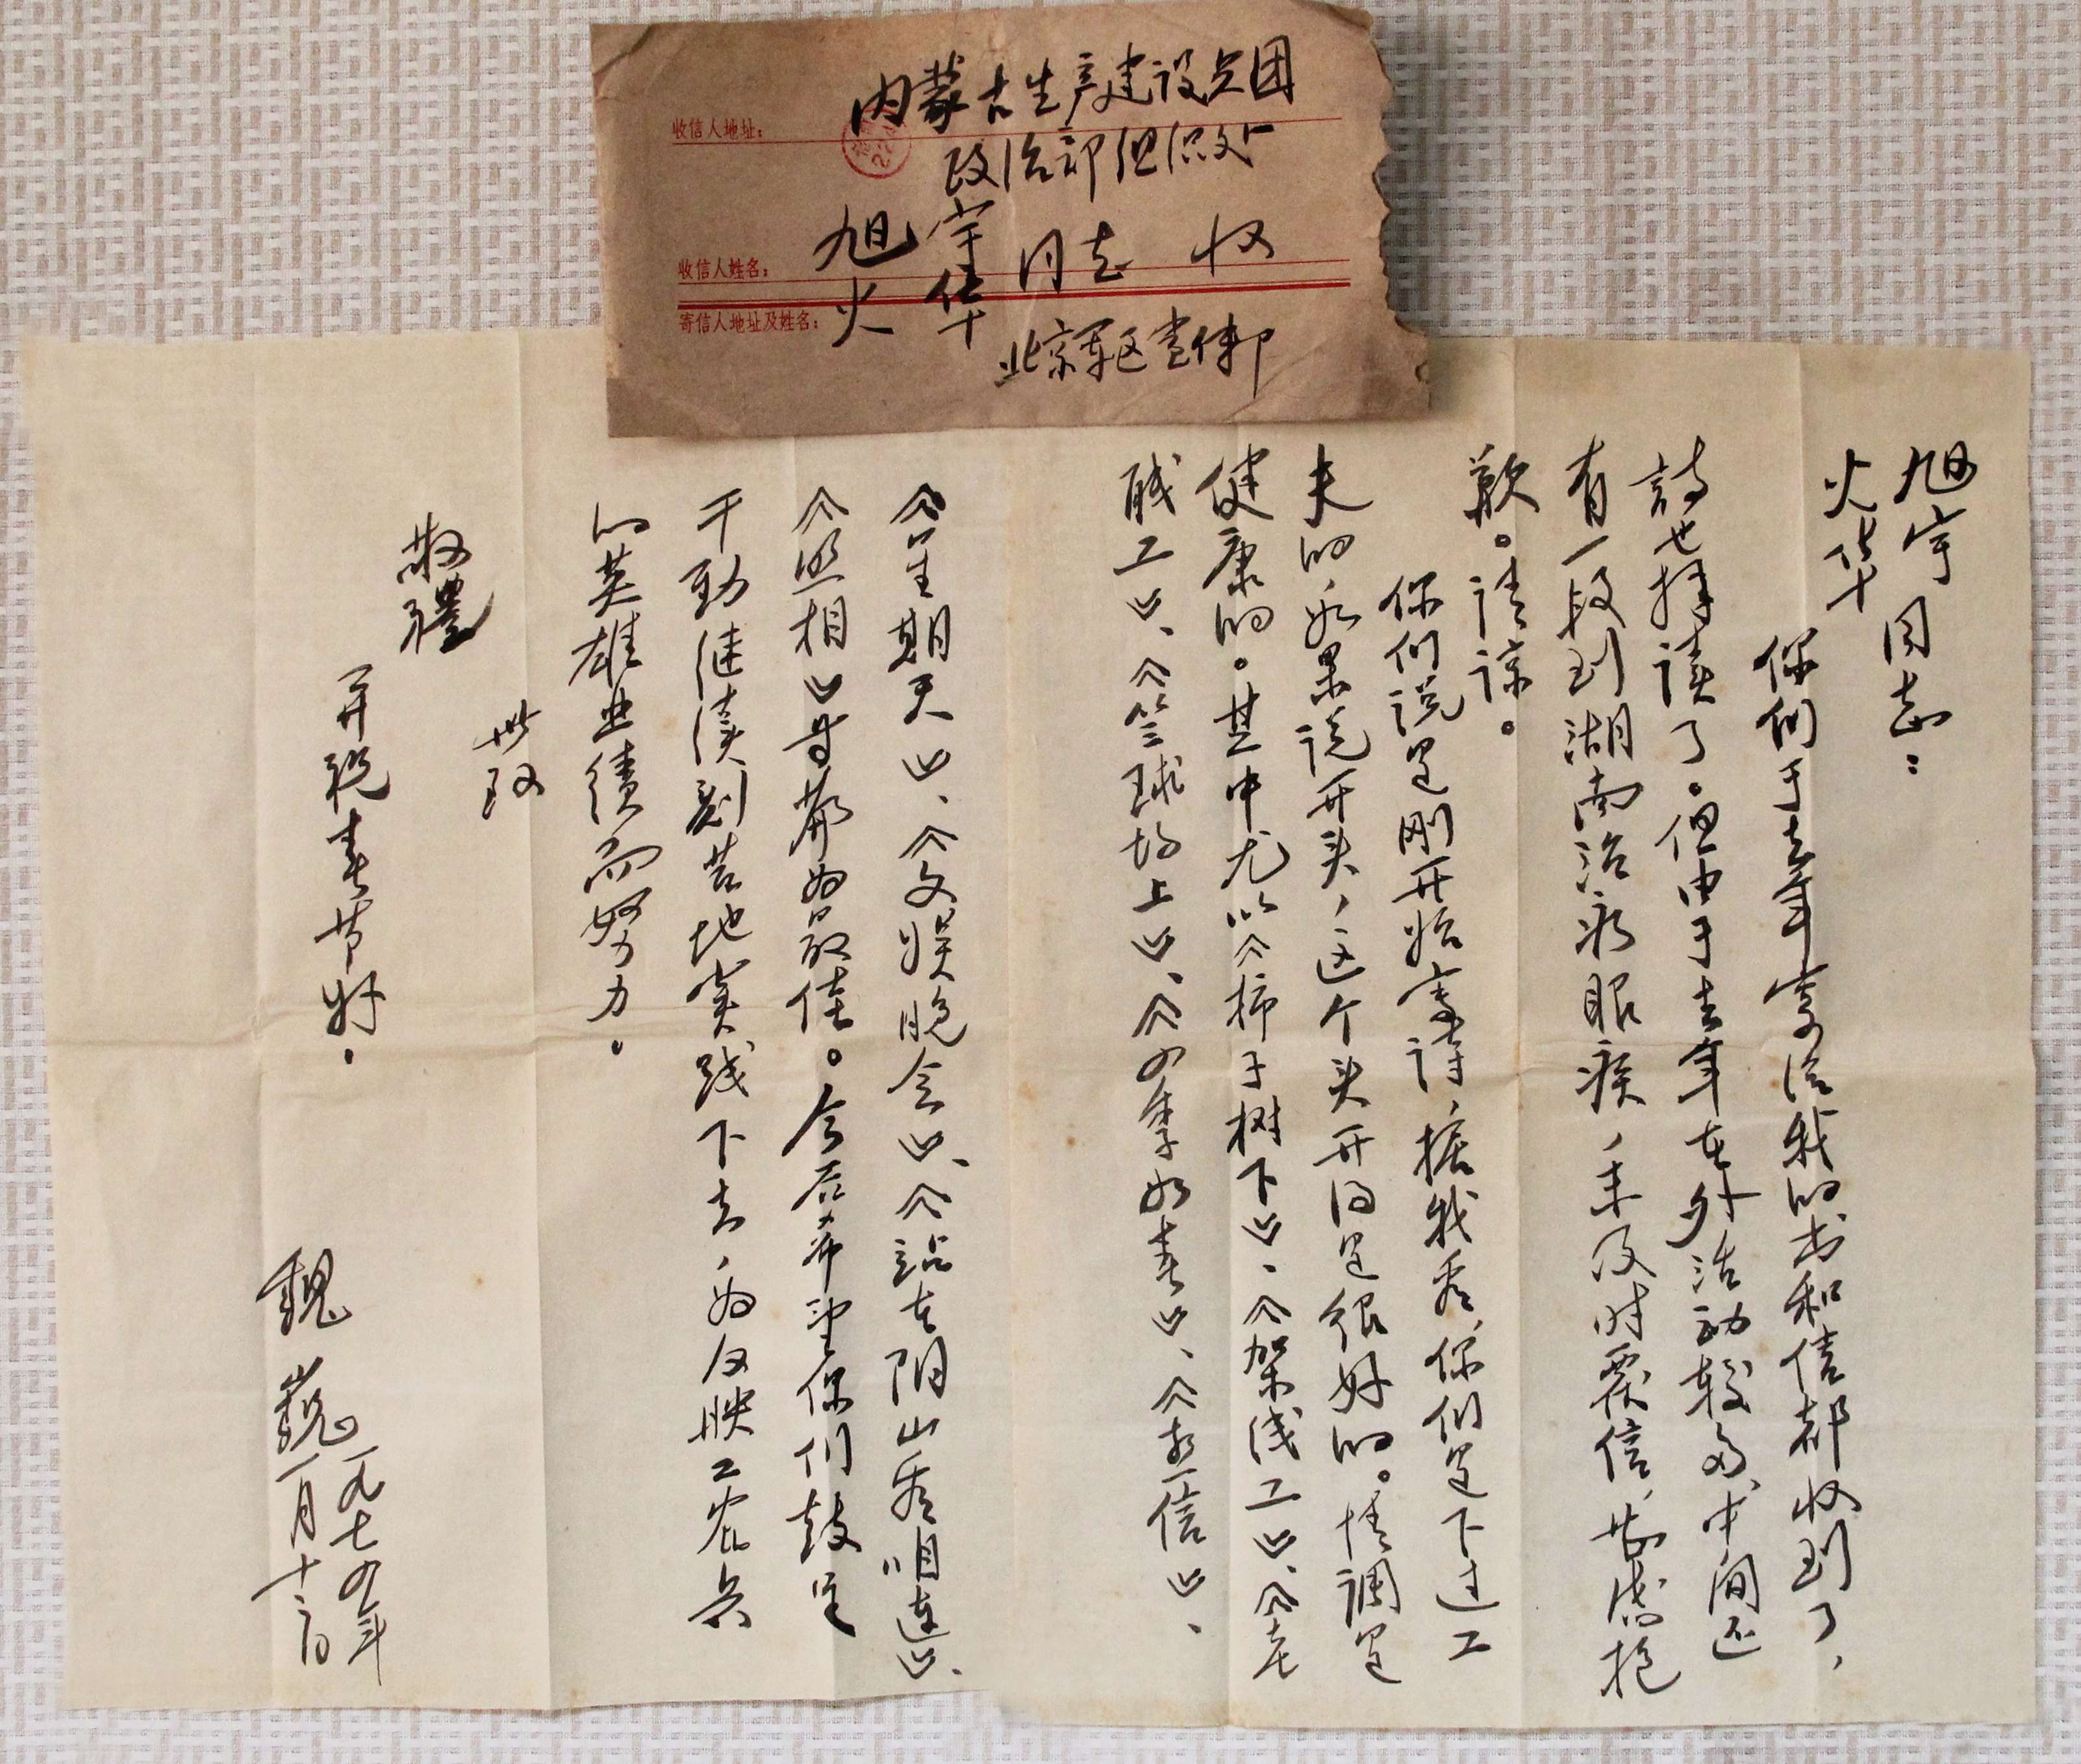 内蒙古生产建设兵团
收信人地址：
政治部组织处
旭宇
火华
同志 收
收信人姓名：
寄信人地址及姓名：
北京军区宣传部
旭宇
火华
同志：
你们于去年寄给我的书和信都收到了，
诗也拜读了。但由于去年在外活动较多，中间还
有一段到湖南治疗眼疾，未及时覆信，甚感抱
歉。请谅。
你们说是刚开始写诗，据我看，你们是下过工
夫的，如果说开头，这个头开得是很好的。情调是
健康的。其中尤以《柿子树下》、《架线工》、《老
职工》、《篮球场上》、《四季如春》、《家信》、
《星期天》、《文娱晚会》、《站在阴山看咱连》、
《照相》等篇为最佳。今后希望你们鼓足
干劲继续刻苦地实践下去，为反映工农兵
的英雄业绩而努力。
此致
敬礼
并祝春节好。
魏巍
一九七四年
一月十二日